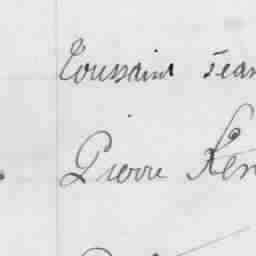 Toussaint Jean
Pierre Ren